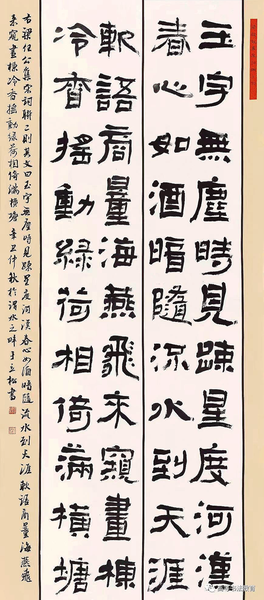 玉宇無塵時見疎星度河漢
春心如酒暗隨流水到天涯
軟語商量海燕飛來窺畫棟
冷香搖動綠荷相倚滿橫塘
右梁任公集宋詞聯二則其文曰玉宇無塵時見疎星度河漢春心如酒暗隨流水到天涯軟語商量海燕飛
來窺畫棟冷香搖動綠荷相倚滿橫塘辛丑仲秋於渭水之畔立松書